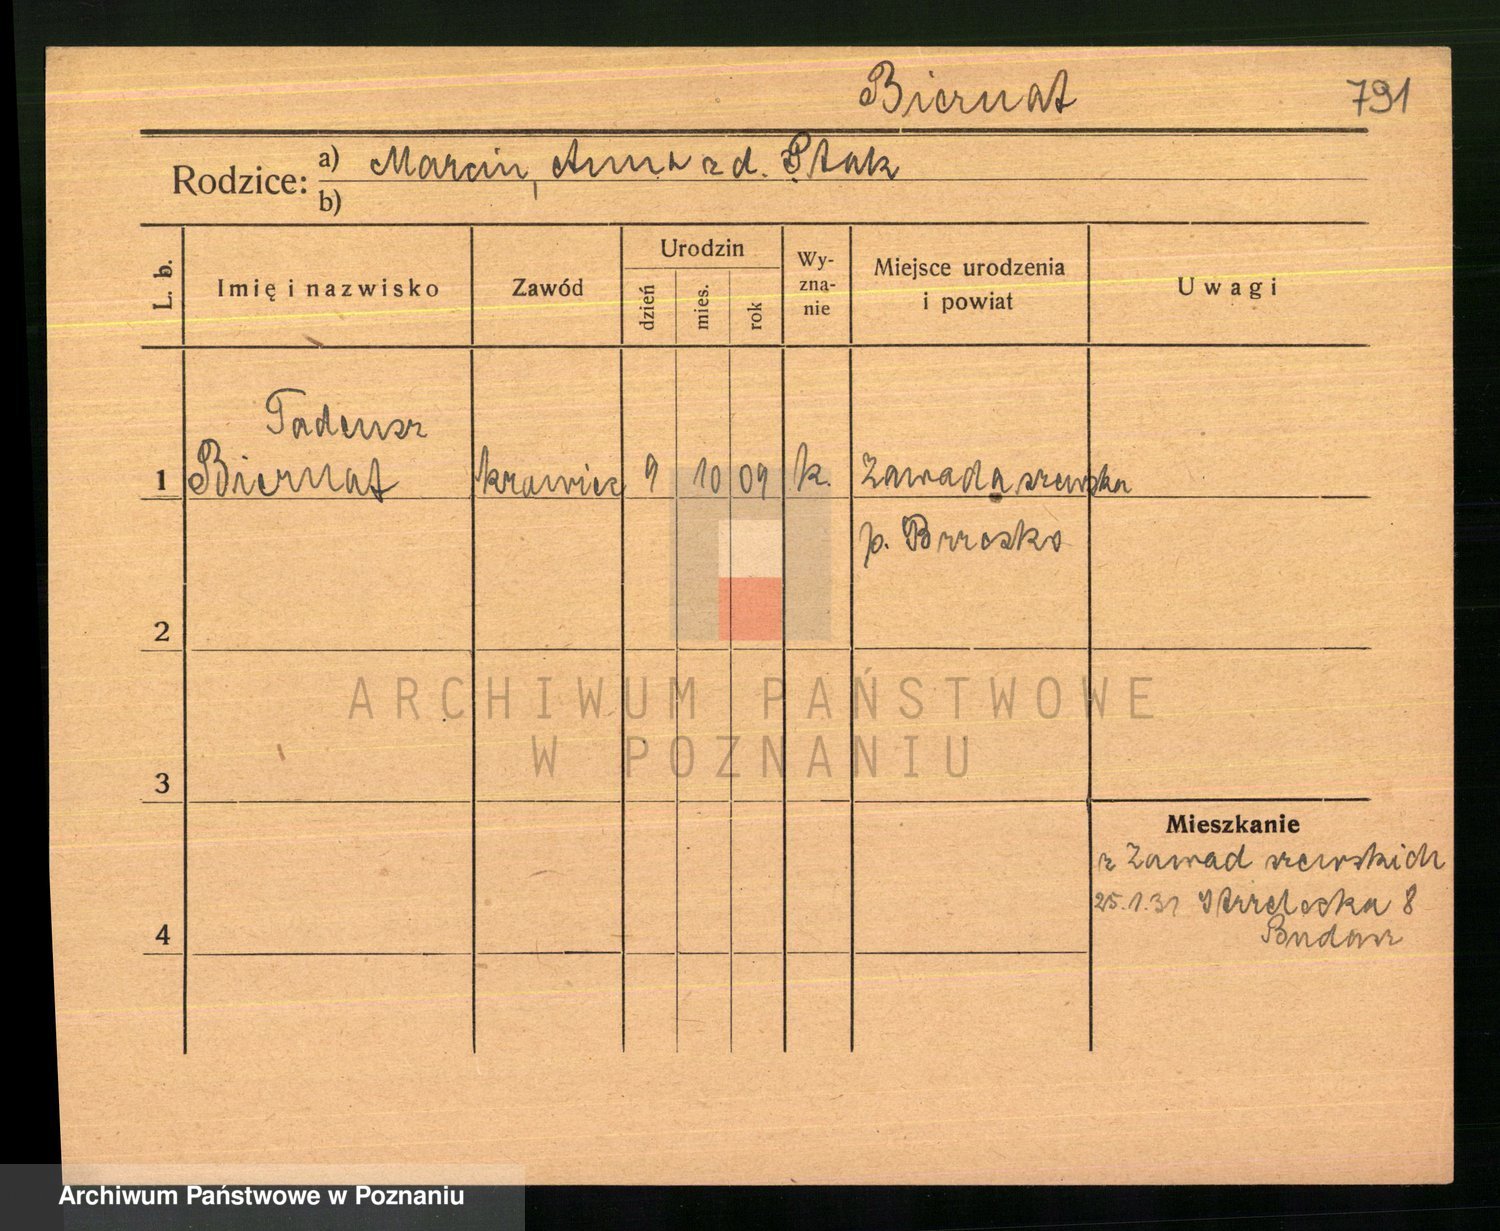 Biernat 791
Rodzice: a) Marcin, Anna z d. Ptak
b)
L. b. Imię i nazwisko Zawód Urodzin dzień mies. rok Wy-zna-nie Miejsce urodzenia i powiat Uwagi
Tadeusz
1 Biernat krawiec 9 10 09 k. Zawada szewska
p. Brzesko
2
ARCHIWUM PAŃSTWOWE
W POZNANIU
3
Mieszkanie
z Zawad szewskich
25.1.31 Strzelecka 8
4
Archiwum Państwowe w Poznaniu